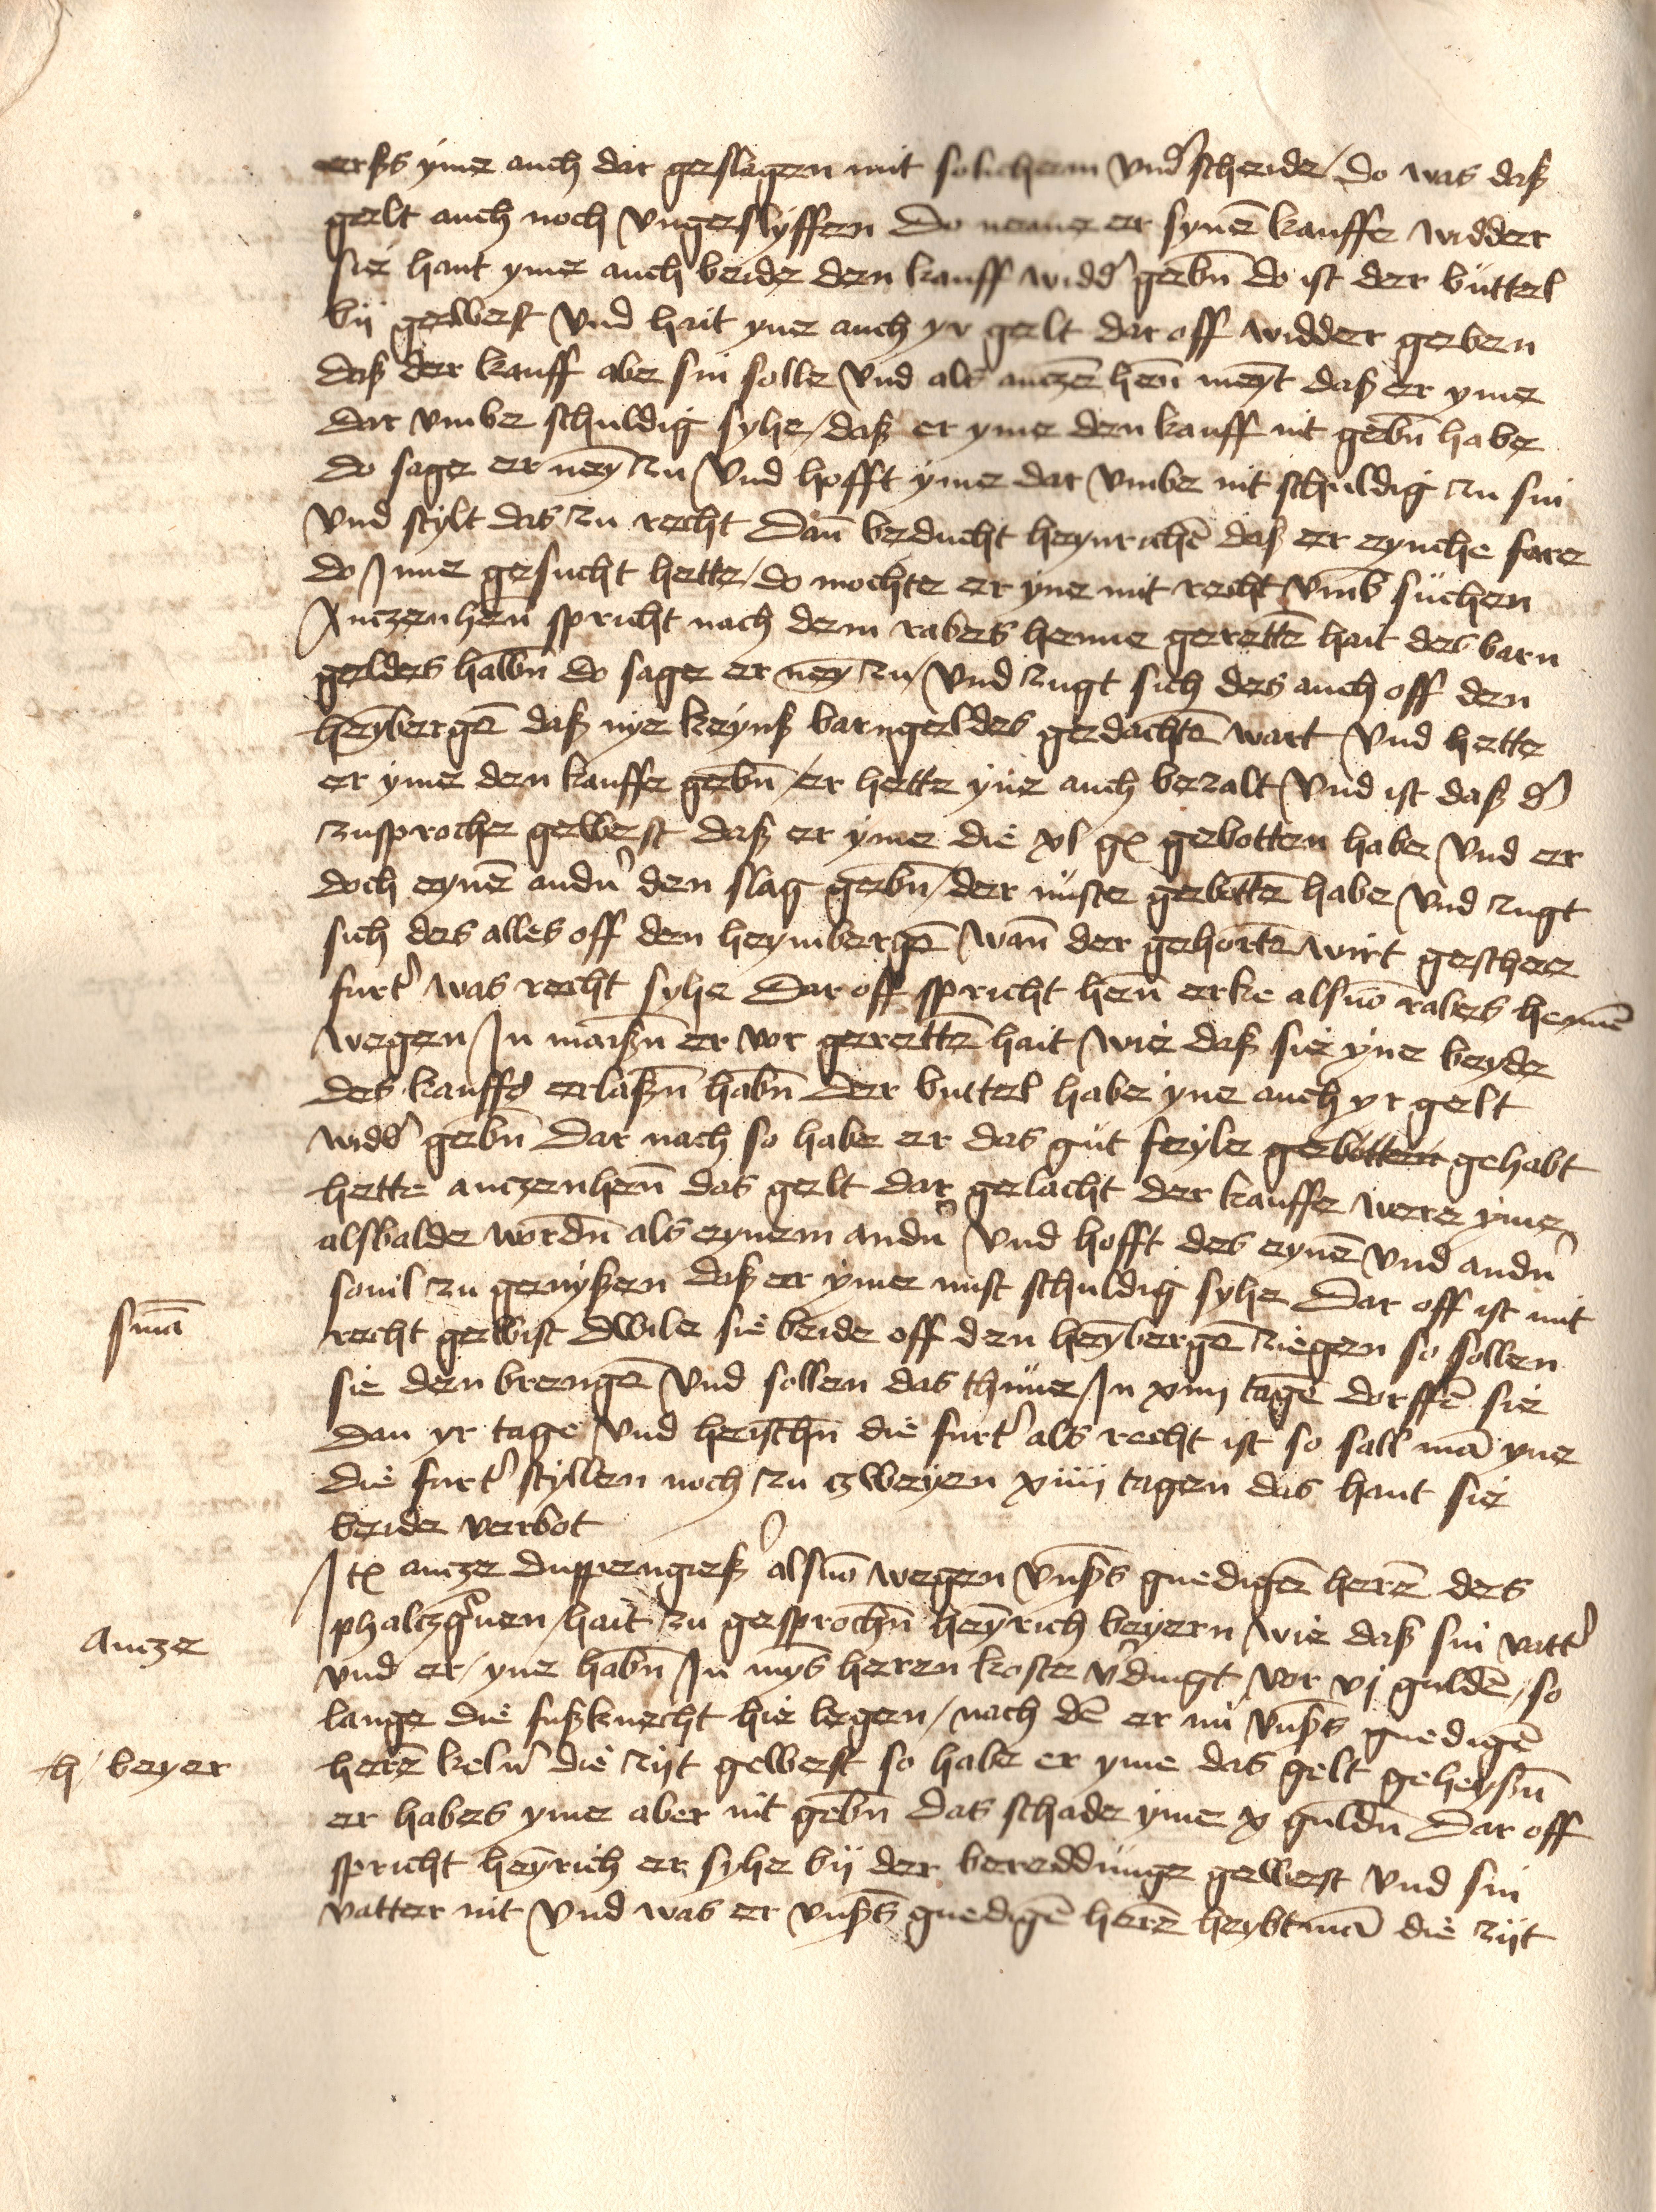 erßs yme auch dar geslagen mit solichem vnd's scheide / do was daß
gelt auch noch vngeslyffen Do neme er synē kauffe widder
sie hant yme auch beide den kauff widd' gebn̄ do ist der buttel
bij gewest vnd hait yne auch yr gelt dar off widder geben
daß der kauff abe sin solle vnd als anczē hen̄ meyt daß er yme
dar vmbe schuldig syhe / daß er yme den kauff nit gebn̄ habe
do sage er ney zu vnd hofft yme dar vmbe nit schuldig zu sin
vnd stylt das zu recht Dan̄ beducht heynrichē daß er eynche fare
do Inne gesucht hette / do mochte er yne mit recht vmb suchen
Anczenhen̄ spricht nach dem rabes henne gerettē hait des barn
geldes halbn̄ do sage er ney zu / vnd zugt sich des auch off den
heybergē daß nye keynß barngeldes gedachtē wart vnd hette
er yme den kauffe gebn̄ / er hette yne auch bezalt vnd ist daß d'
zusproche gewest daß er yme die xl gl gebotten habe vnd er
doch eynē andn' den slag gebn̄ / der nuste gebottē habe vnd zugt
sich des alles off den heymbergē wan̄ der gehortē wirt geschee
furt' was recht syhe Dar off spricht hen̄ erke alsuō rabes hennē
wegen In maißn̄ er vor gerettē hait wie daß sie yne beyde
des kauffs erlaßn̄ habn̄ Der buttel habe yne auch yr gelt
widd' gebn̄ Dar nach so habe er das gut feyle gebotten gehabt
hette anczenhen̄ das gelt dar gelacht der kauffe were yme
alsbalde wordn̄ als eynem andn' vnd hofft des eynē vnd andn'
souil zu genyßen daß er yme nust schuldig syhe Dar off ist mit
recht gewist Dwile sie beide off den heybergē ziegen so sollen
sie den brengē vnd sollen das thune / In xiiij tagē dorffē sie
dan yr tage vnd heischn̄ die furt' als recht ist so sall mā yne
die furt' styllen noch zu zweyen xiiij tagen das hant sie
beide verbot
Itē ancze duppengieß' alsuō wegen vnß's gnedigē herē des
phaltzg'uen / hait zu gesprochn̄ heyrich beyern wie daß sin vatt'
vnd er / yne habn̄ In myns heren koste v'dingt vor vj guldē / so
lange die fußknecht hie legen / nach dē er nu vnß's gnedigē
herē keln' die zijt gewest so habe er yme das gelt geheyßn̄
er habes yme aber nit gebn̄ Das schade yme x guldn̄ Dar off
spricht heyrich er syhe bij der bereddunge gewest vnd sin
vatter nit vnd was er vnß's gnedigē herē heybtmā die zijt
smā
Ancze
h / beyer